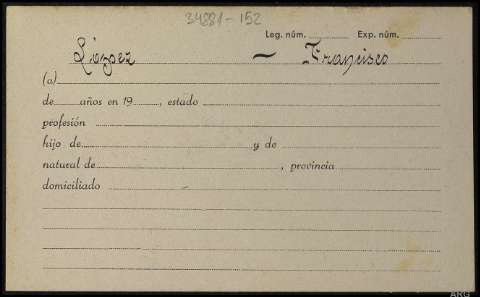 34281-152
Leg. núm. Exp. núm.
López — Francisco
(a)
de años en 19 , estado
profesión
hijo de y de
natural de , provincia
domiciliado
ARG